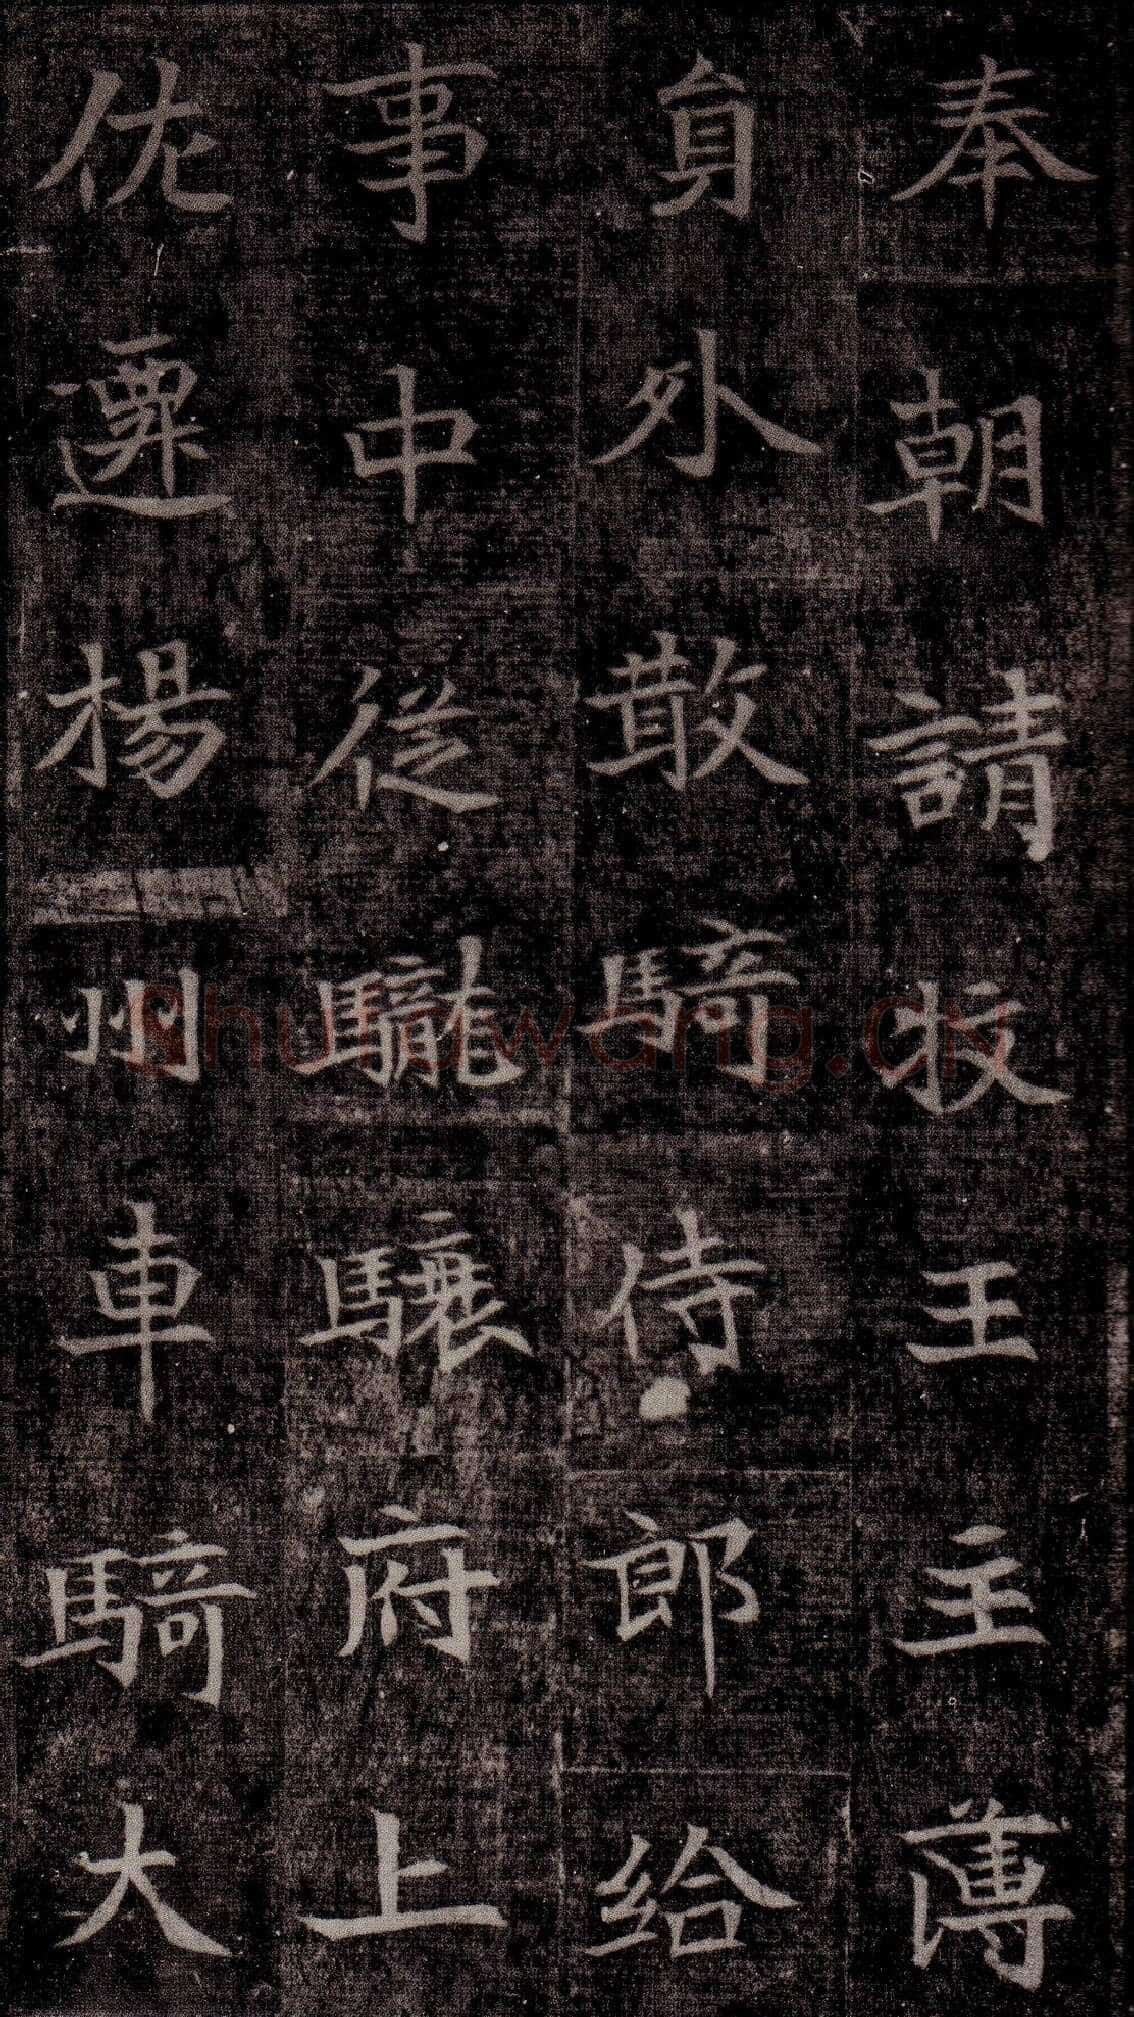 奉朝請牧王主薄
員外散騎侍郎給
事中從龍驤府上
佐遷楊州車騎大
shufawang.cn